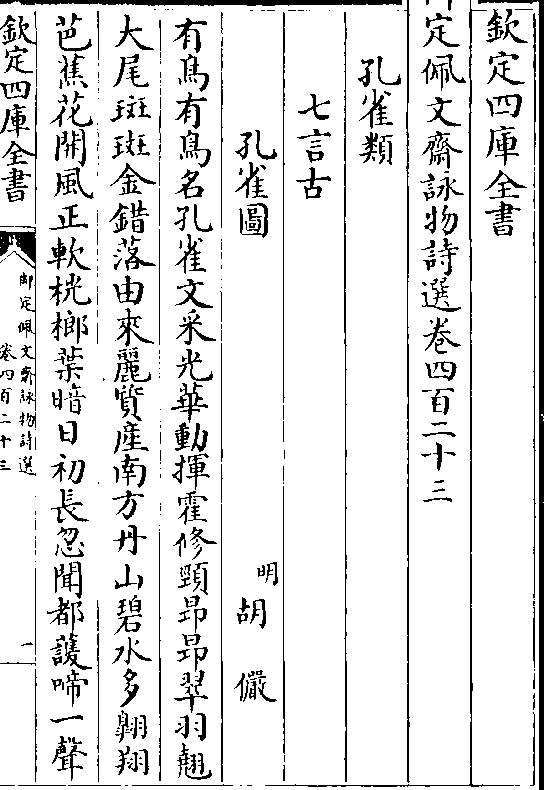 欽定四庫全書
御定佩文齋詠物詩選卷四百二十三
孔雀類
七言古
孔雀圖
明 胡儼
有鳥有鳥名孔雀文采光華動揮霍修頸昂昂翠羽翹
大尾斑斑金錯落由來麗質産南方丹山碧水多翺翔
芭蕉花開風正軟桄榔葉暗日初長忽聞都護啼一聲
欽定四庫全書
御定佩文齋詠物詩選
卷四百二十三
一